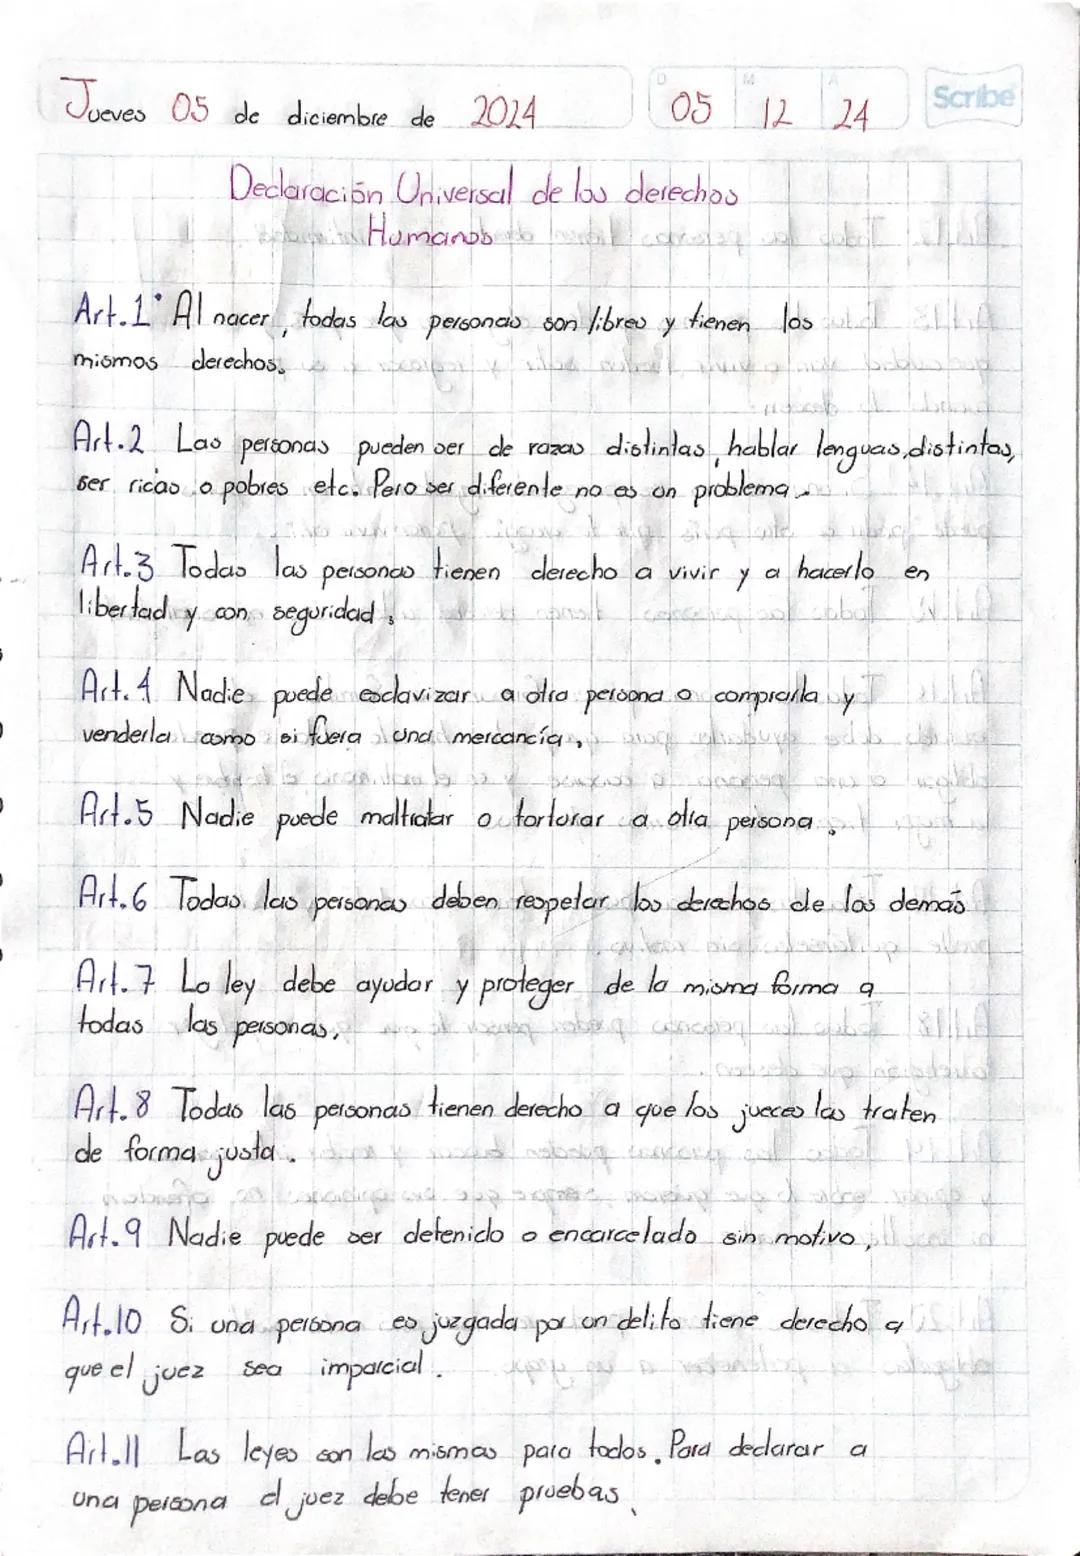 Jueves 05 de diciembre de 2024
D M A
05 12 24
Scribe
Declaración Universal de los derechos
Humanos
Art.1° Al nacer, todas las personas son libres y tienen los
mismos derechos.
Art.2 Las personas pueden ser de razas distintas, hablar lenguas distintas,
ser ricas o pobres etc. Pero ser diferente no es un problema.
Art.3 Todas las personas tienen derecho a vivir y a hacerlo en
libertad y con seguridad.
Art.4 Nadie puede esclavizar a otra persona o comprarla y
venderla como si fuera una mercancía.
Art.5 Nadie puede maltratar o torturar a otra persona.
Art.6 Todas las personas deben respetar los derechos de los demás
Art.7 La ley debe ayudar y proteger de la misma forma a
todas las personas.
Art.8 Todas las personas tienen derecho a que los jueces las traten
de forma justa.
Art.9 Nadie puede ser detenido o encarcelado sin motivo.
Art.10 Si una persona es juzgada por un delito tiene derecho a
que el juez sea imparcial.
Art.11 Las leyes son las mismas para todos. Para declarar a
una persona el juez debe tener pruebas.